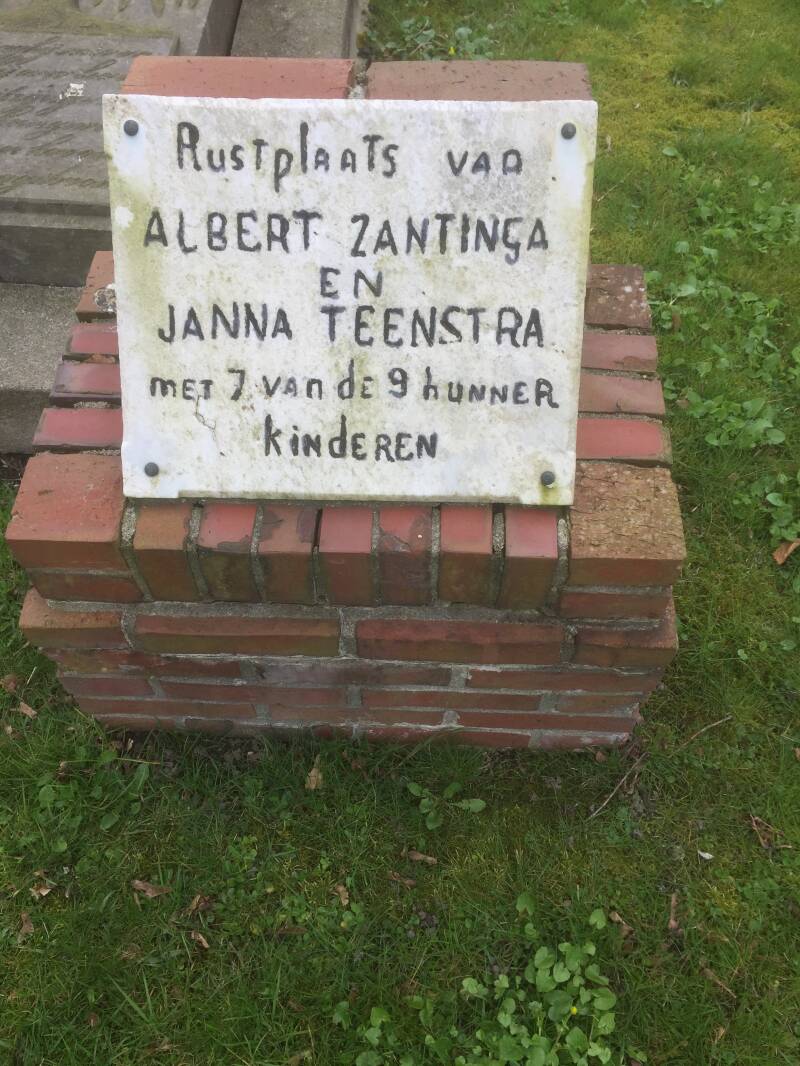 Rustplaats van
ALBERT ZANTINGA
EN
JANNA TEENSTRA
MET 7 VAN dE 9 hUNNER
kindEREN